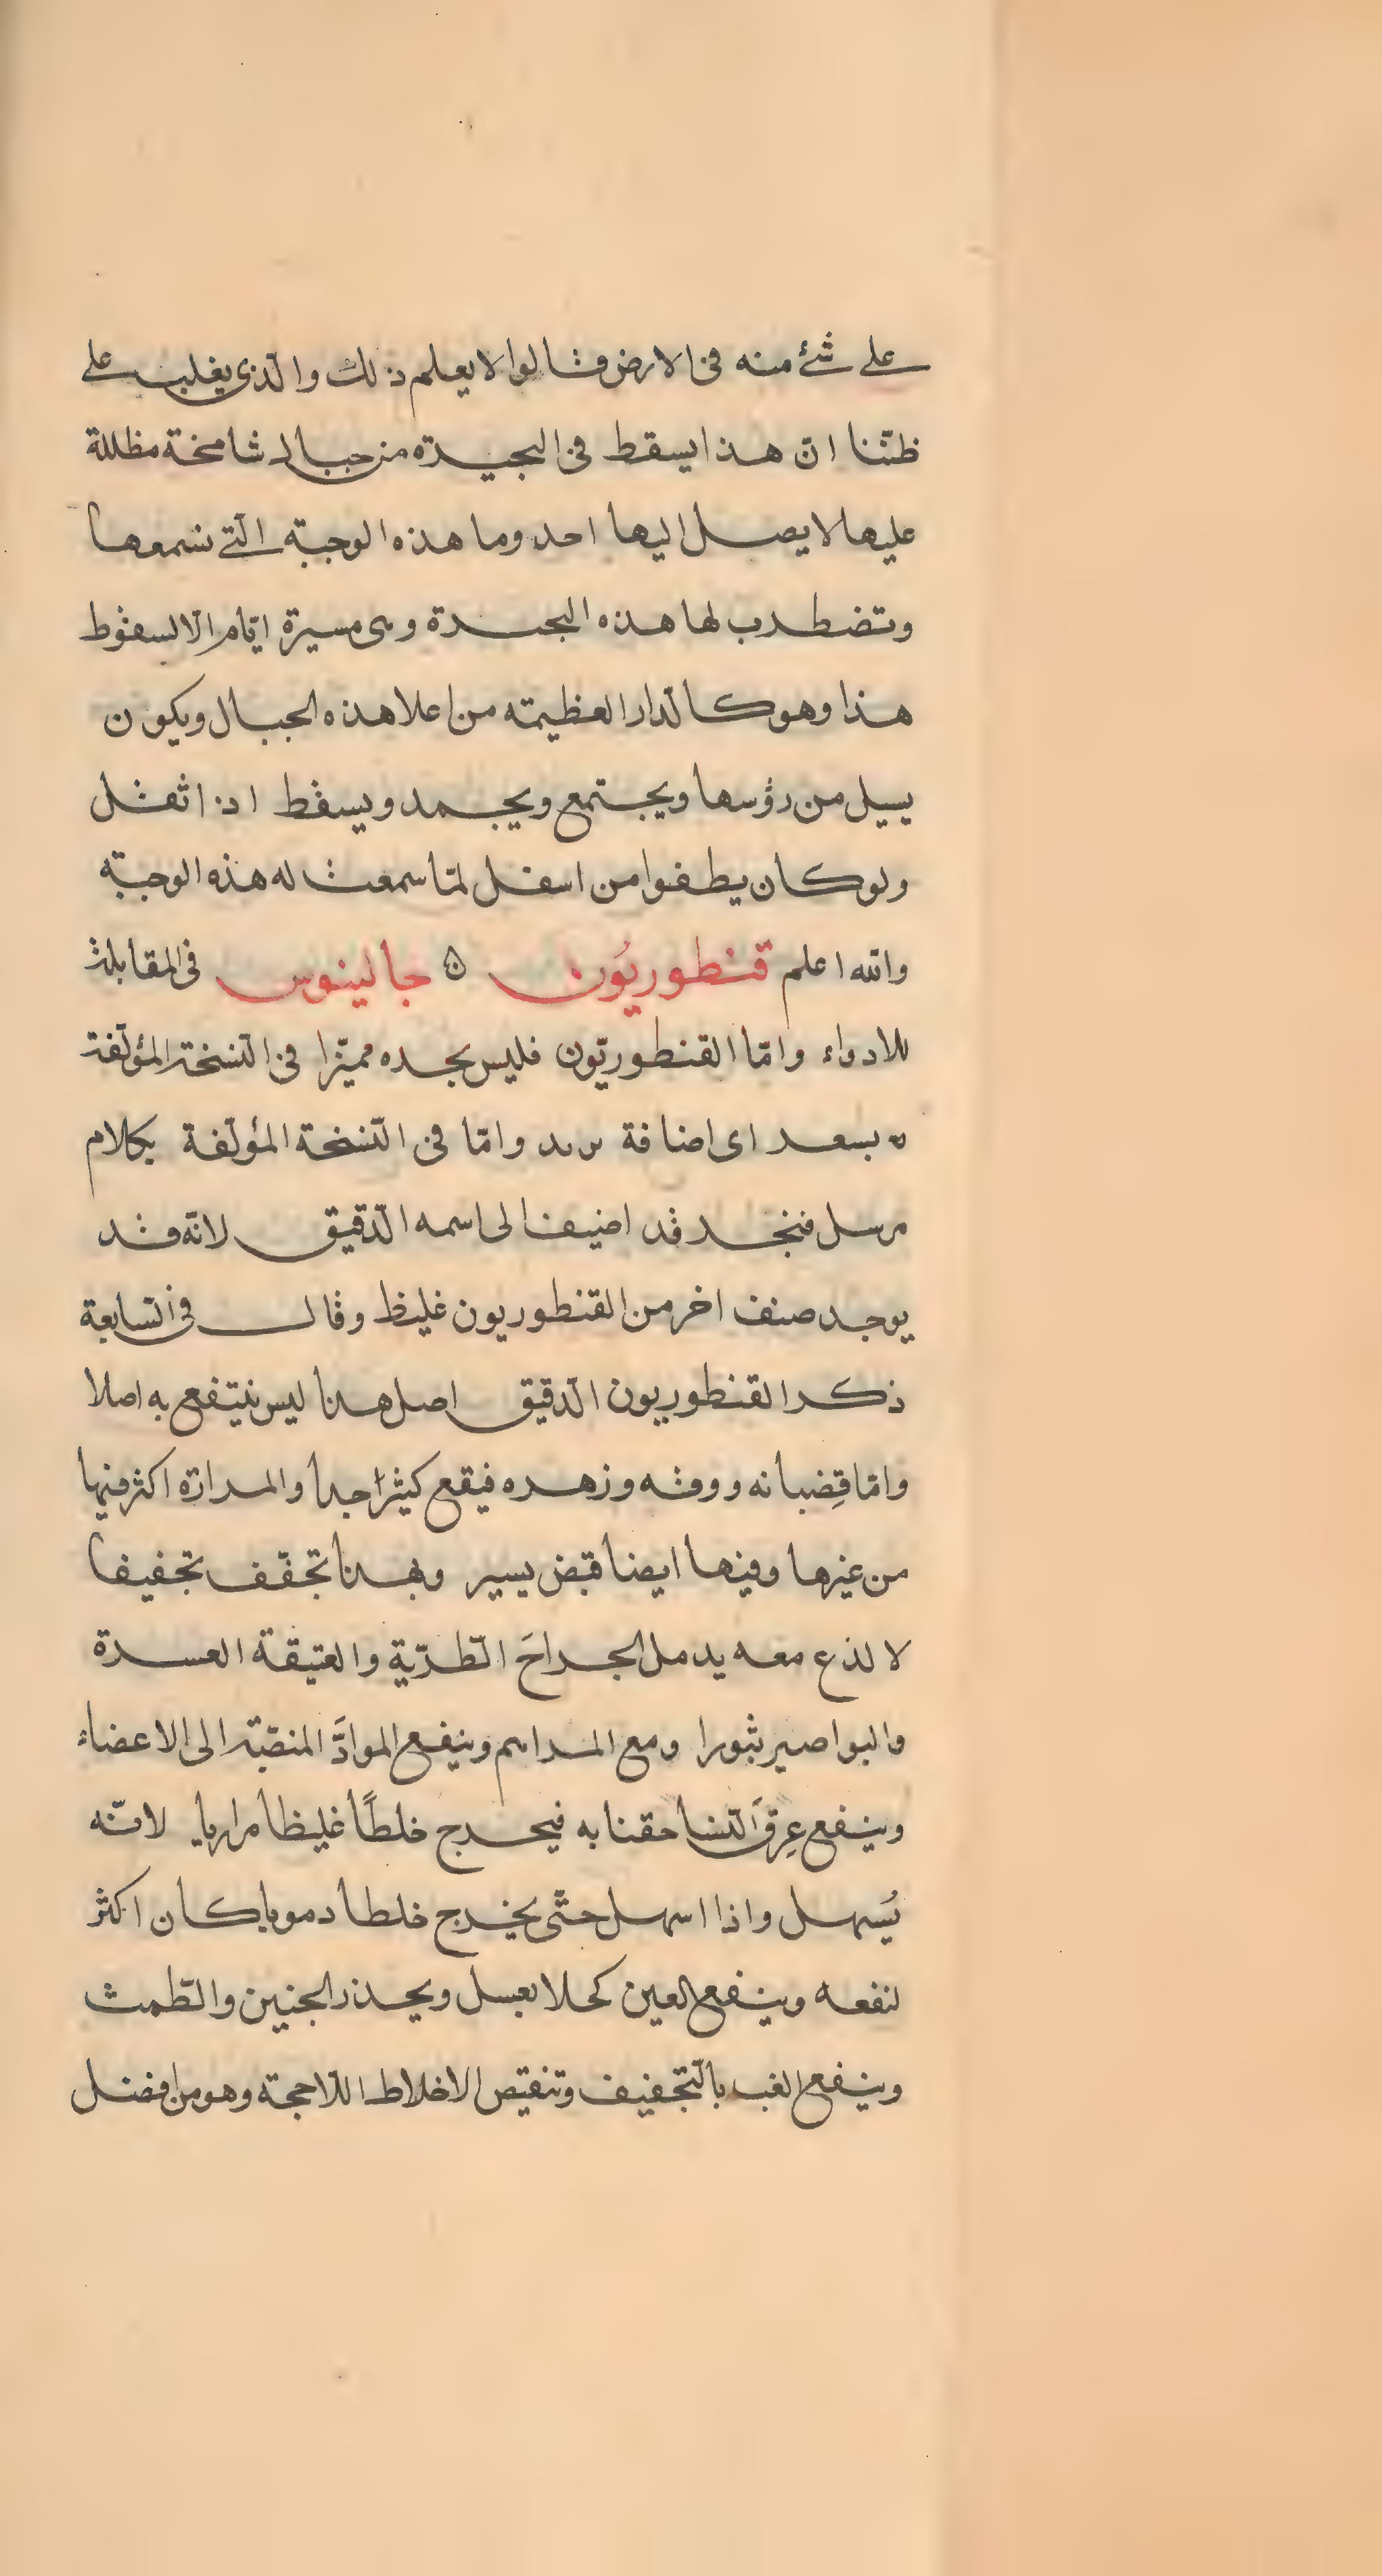 على شئ منه فى الارض وقالوا لا يعلم ذلك والّذى يغلب على
ظنّنا انّ هذا يسقط فى البحيرة من جبال شامخة مظللة
عليها لا يصل اليها احد وما هذه الوجبة الّتى نسمعها
وتضطرب لها هذه البحيرة وهى مسيرة ايّام الّا لسقوط
هذا وهو كالدار العظيمة من اعلا هذه الجبال ويكون
يسيل من رؤسها ويجتمع ويجمد ويسقط اذا ثقل
ولو كان يطفوا من اسفل لمّا سمعت له هذه الوجبة
والله اعلم قنطوريُون ۞ جالينوس فى المقابلة
للادواء وامّا القنطوريّون فليس يجده مميّزا فى النّسخة المؤلّفة
اى اضافة وامّا فى النّسخة المؤلّفة بكلام
مرسل فنجد قد اضيف الى اسمه الدّقيق لانّه قد
يوجد صنف اخر من القنطوريون غليظ وقال فى السّابعة
ذكر القنطوريون الدّقيق اصل هذا ليس ينتفع به اصلا
وامّا قِضبانه وورقه وزهره فيقع كثيرًا جدا والمرارة اكثر فيها
من غيرها وفيها ايضا قبض يسير وبهذا تجفّف تجفيفا
لا لذع معه يدمل الجراحَ الطّريّة والعتيقة العسرة
والبواصير بثورا ومع المراهم وينفع الموادَّ المنصبّة الى الاعضاء
وينفع عِرقَ النّسا حقنا به فيخرج خلطًا غليظا مراريا لانّه
يُسهل واذا اسهل حتّى يخرج خلطا دمويا كان اكثر
لنفعه وينفع العين كحلا بعسل ويحدر الجنين والطّمث
وينفع العب بالتّجفيف وتنقيص الاخلاط اللّاحجة وهو من افضل